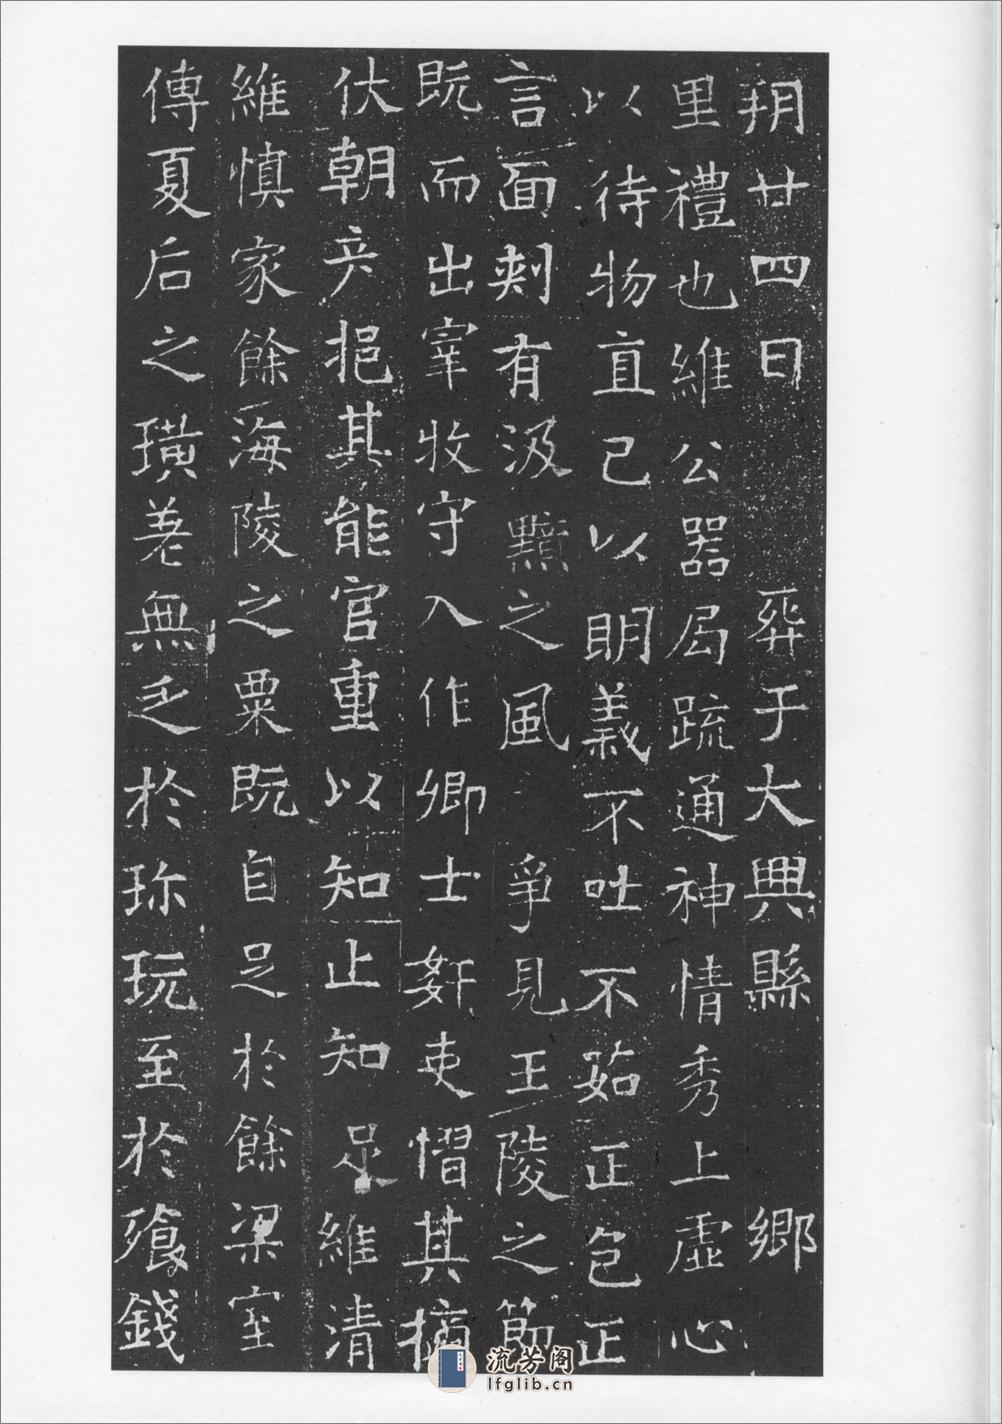 朔廿四日 葬于大興縣 鄉
里禮也維公器局疏通神情秀上虛心
以待物直己以明義不吐不茹正色正
言面刺有汲黯之風 爭見王陵之節
既而出宰收守入作卿士奸吏慴其摘
伏朝彥挹其能官重以知止知足維清
維慎家餘海陵之粟既自足於餘梁室
傳夏后之璜差無乏於珎玩至於飡錢
流芳阁
lfglib.cn